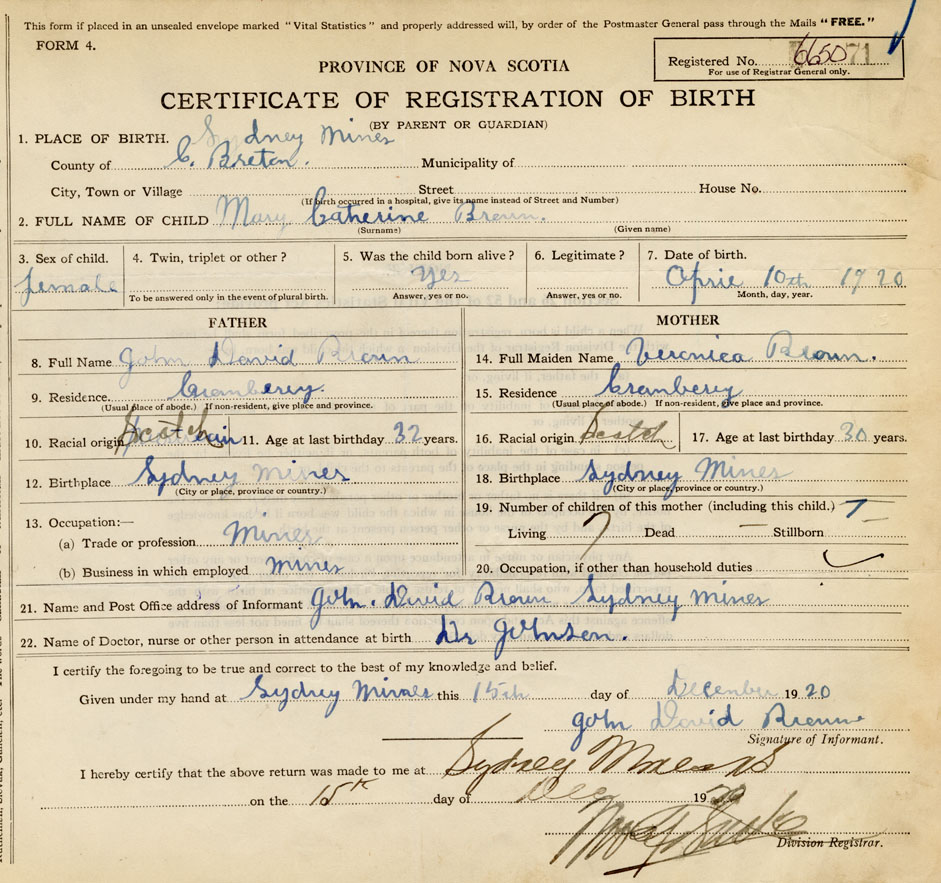 This form if placed in an unsealed envelope marked "Vital Statistics" and properly addressed will, by order of the Postmaster General pass through the Mails "FREE."
FORM 4.
Registered No. 66507 71
For use of Registrar General only.
PROVINCE OF NOVA SCOTIA
CERTIFICATE OF REGISTRATION OF BIRTH
(BY PARENT OR GUARDIAN)
1. PLACE OF BIRTH. Sydney Mines
County of C. Breton. Municipality of
City, Town or Village Street House No.
(If birth occurred in a hospital, give its name instead of Street and Number)
2. FULL NAME OF CHILD Mary Catherine Broun.
(Surname) (Given name)
3. Sex of child. 4. Twin, triplet or other? 5. Was the child born alive? 6. Legitimate? 7. Date of birth.
female Yes Aprie 10th 1920
To be answered only in the event of plural birth. Answer, yes or no. Answer, yes or no. Month, day, year.
FATHER MOTHER
8. Full Name John David Broun 14. Full Maiden Name Veronica Broun.
9. Residence. Cramberry. 15. Residence Cramberry
(Usual place of abode.) If non-resident, give place and province. (Usual place of abode.) If non-resident, give place and province.
10. Racial origin Scotch 11. Age at last birthday 32 years. 16. Racial origin Scotch 17. Age at last birthday 30 years.
12. Birthplace Sydney Mines 18. Birthplace Sydney Mines
(City or place, province or country.) (City or place, province or country.)
13. Occupation:— 19. Number of children of this mother (including this child.) 7
(a) Trade or profession Miner Living 7 Dead — Stillborn —
(b) Business in which employed mines 20. Occupation, if other than household duties
21. Name and Post Office address of Informant John. David Broun Sydney Mines
22. Name of Doctor, nurse or other person in attendance at birth Dr Johnson.
I certify the foregoing to be true and correct to the best of my knowledge and belief.
Given under my hand at Sydney Mines this 15th day of December 1920
John David Broun
Signature of Informant.
I hereby certify that the above return was made to me at Sydney Mines
on the 15th day of Dec 1920
Division Registrar.